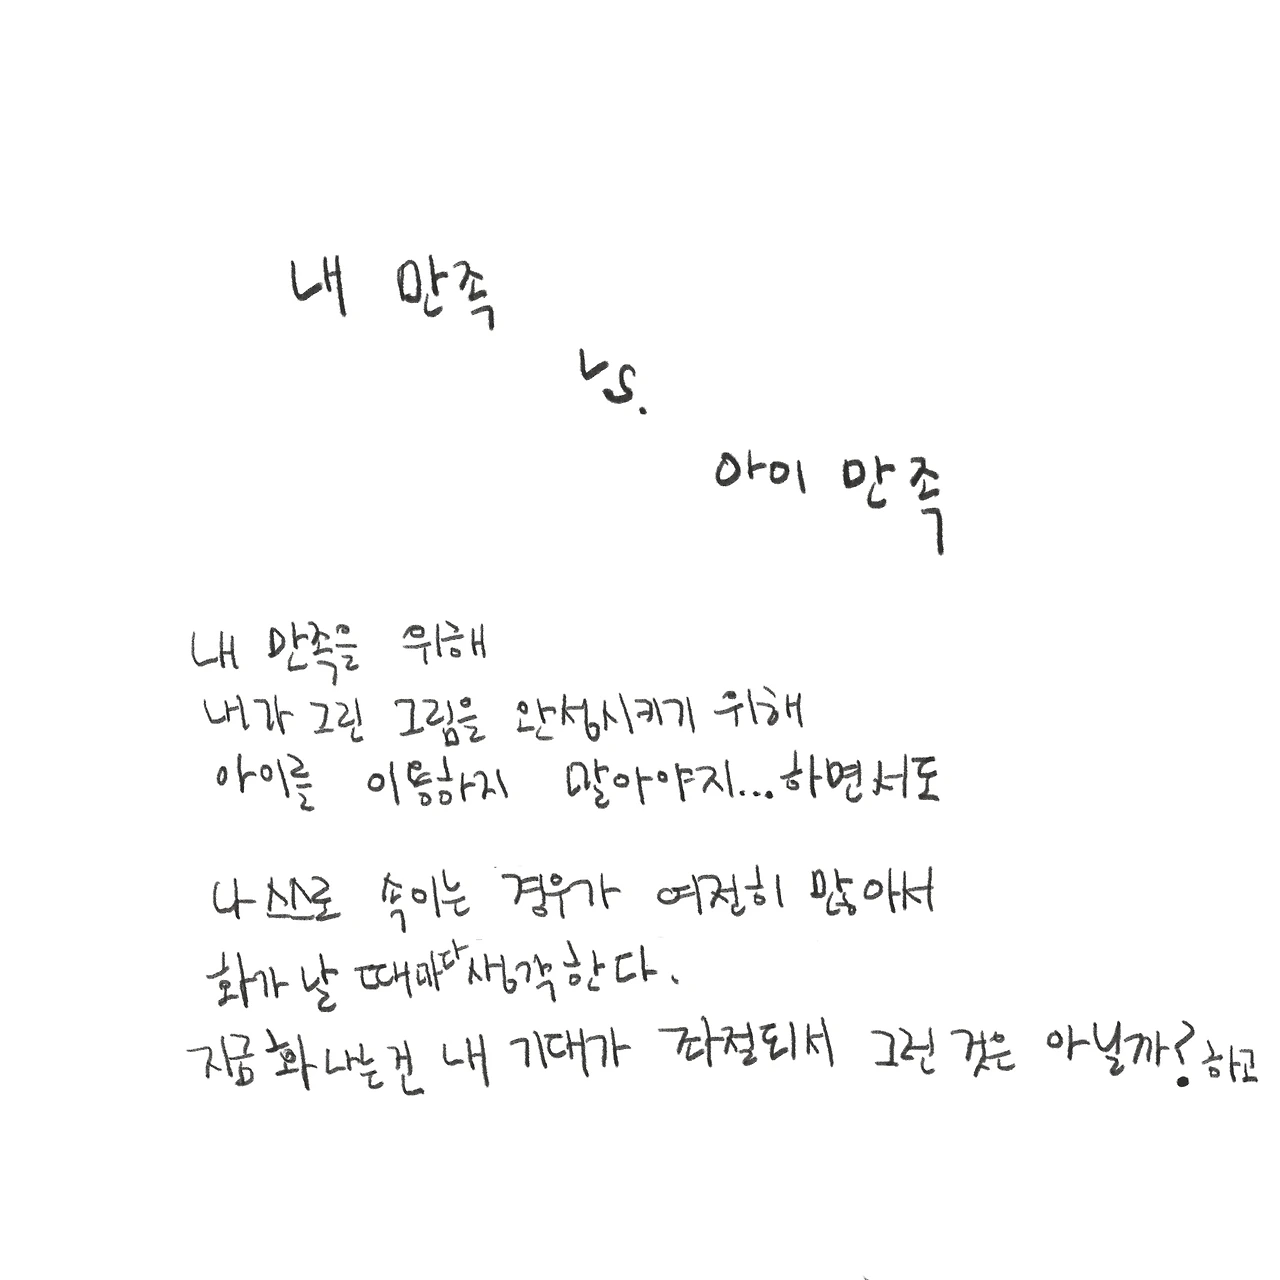 내 만족
vs.
아이 만족
내 만족을 위해
내가 그린 그림을 완성시키기 위해
아이를 이용하지 말아야지...하면서도
나 스스로 속이는 경우가 여전히 많아서
화가 날 때마다 생각한다.
지금 화나는건 내 기대가 좌절되서 그런 것은 아닐까? 하고